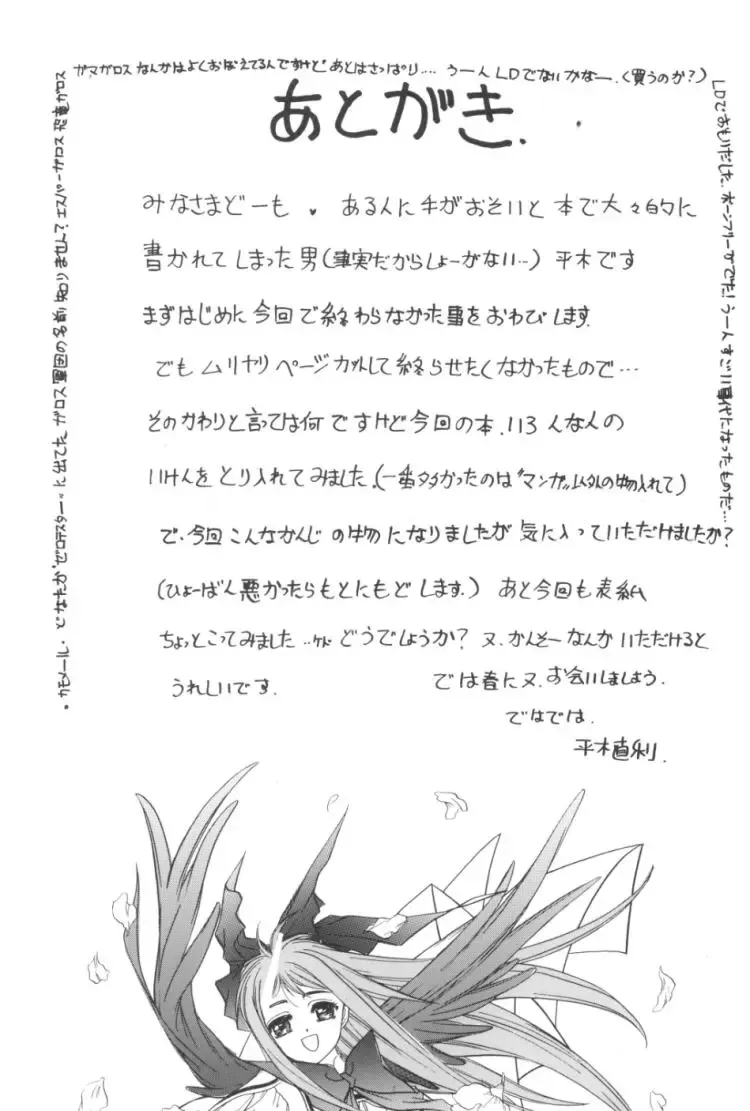 あとがき.
みなさまどーも あるんに手がおそいと本で大々的に
書かれてしまった男(事実だからしょーがない…)平木です
まずはじめに今回で終わらなかった事をおわびします.
でもムリヤリページカットして終らせたくなかったもので…
そのかわりと言っては何ですけど今回の本.113んなんの
いけんをとり入れてみました.(一番多かったのは〝マンガ〟以外の物入れて)
で.今回こんなかんじの物になりましたが気に入っていただけましたか?
(ひょーばん悪かったらもとにもどします.) あと今回も表紙
ちょっとこってみました…ケドどうでしょうか? 又.かんそーなんかいただけると
うれしいです. では春に又.お会いしましよう.
ではでは.
平木直利.
・カモメール・どなたか〝ゼロテスター〟に出てたガロス軍団の名前知りません? エスパーガロス 恐竜ガロス
ガマガロスなんかはよくおぼえてるんですけどあとはさっぱり…. うーんLDでないかなー.(買うのか?)
LDでおもいだした.ボーンフリーがでた!うーんすごい時代になったものだ…